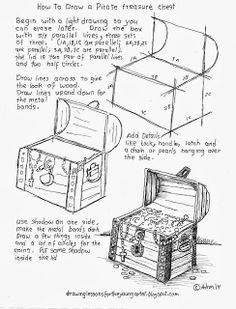 How To Draw a Pirate treasure chest
Begin with a light drawing so you
can erase later. Draw the box
with six parallel lines, three sets
of three. (1A,1B,1C are parallel; 2A,2B,2C
are parallel, 3A,3B,3C are parallel.)
the lid is two pair of parallel lines
and two half circles.
Draw lines across to give
the look of wood.
Draw lines up and down for
the metal
bands.
Add Details
like lock, handle, latch and
a chain or pearls hanging over
the side.
use shadow on one side,
make the metal bands dark
Draw a few things inside
and a lot of circles for the
coins. Put some shadow
inside the lid
drawinglessonsfortheyoungartist.blogspot.com